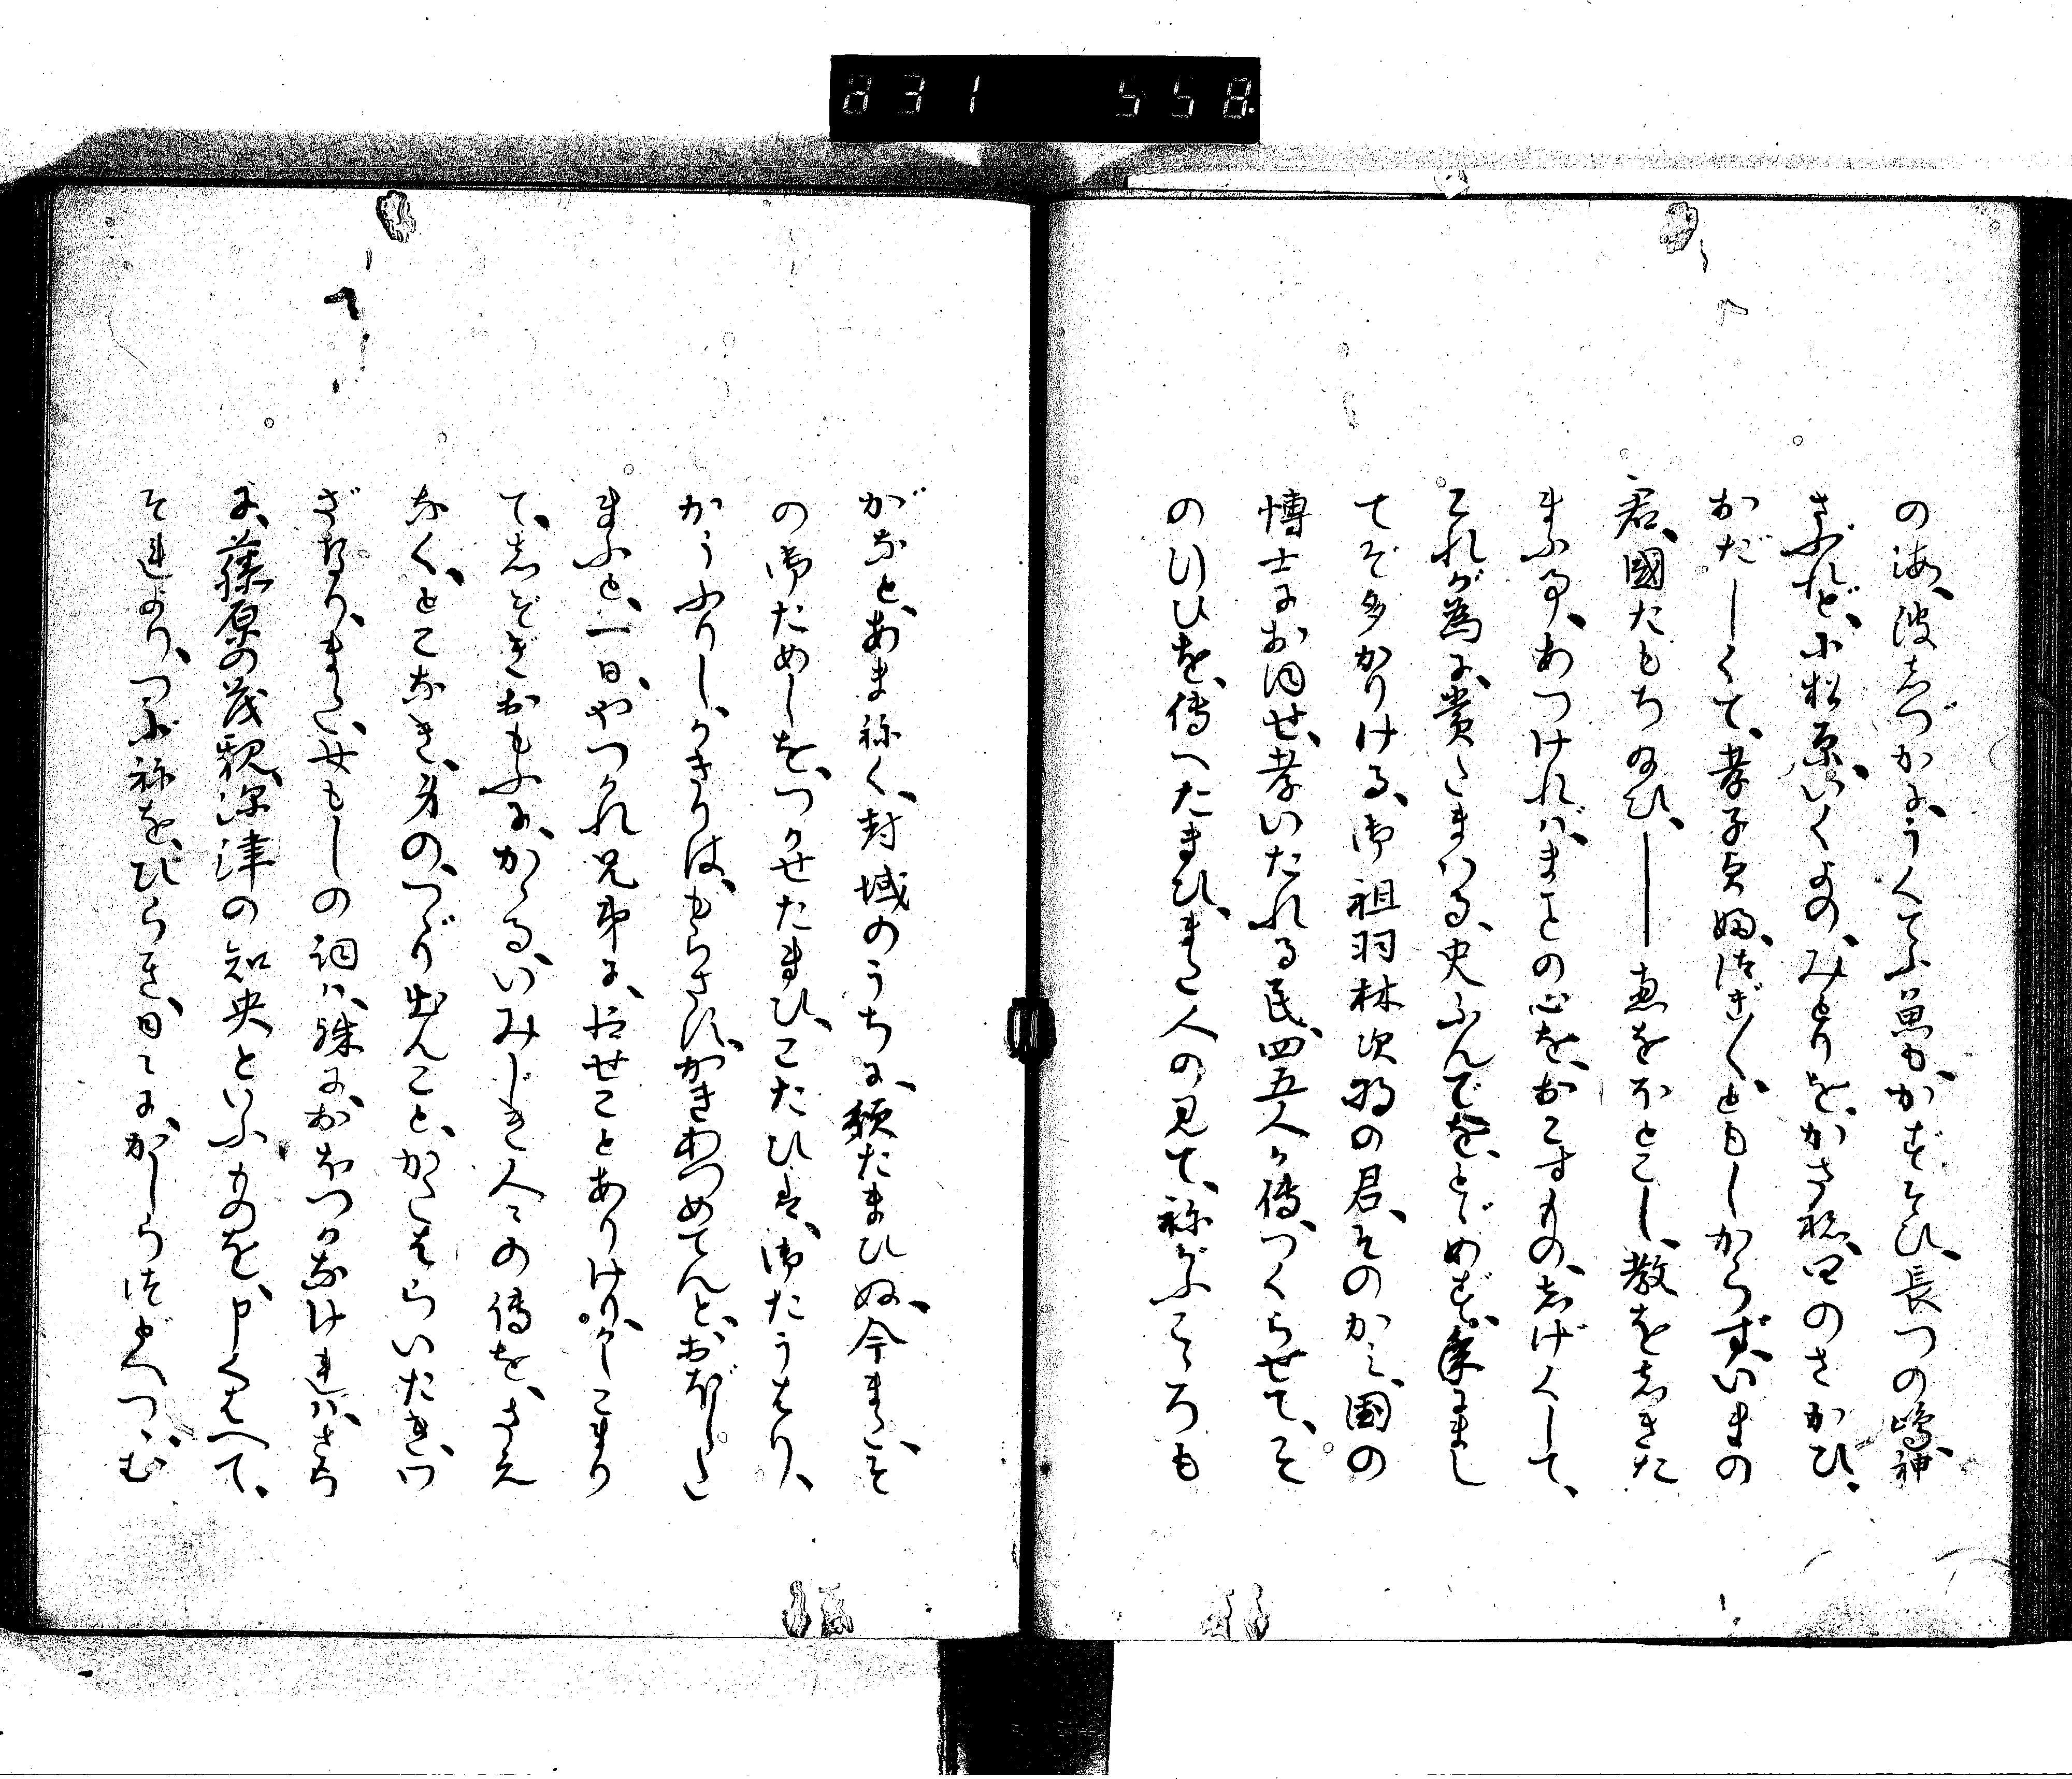 831 558
の海、波しづかに、うくてふ魚も、かずそひ、長つの嶋、神
さぶれど、小松原、いくよの、みどりを、かさね、四のさかひ、
おだしくて、孝子貞婦、つぎ〳〵、ともしからず、いまの
君、國たもち給ひ、しー恵をほどこし、教をしきた
まふ事、あつければ、まことの心を、おこすもの、しげくして、
これが為に、賞たまはる、史ふんでを、とゞめず、年にまし
てぞ多かりける、御祖羽林次将の君、そのかみ、国の
博士におほせ、孝いたれる民、四五人が傳、つくらせて、そ
の行ひを、傳へたまひ、また人の見て、ねがふこゝろも
がなと、あまねく、封域のうちに、頒たまひぬ、今また、そ
の御ためしを、つかせたまひ、こたひは、御たうばり、
かうふりし、かきりは、もらさず、かきあつめてんと、おぼした
まふと、一日、やつがれ兄弟に、仰せことありけり、かしこまり
て、しぞきおもふに、かゝる、いみじき人々の傳を、さえ
なく、とこなき、身の、つゞり出んこと、かたはらいたき、わ
ざなり、また、女もしの詞は、殊におほつかなければ、さら
に、藤原の茂親、深津の知央といふものを、申くはへて、
それより、つぶねを、ひらき、日々に、かしらつどへつゝ、む